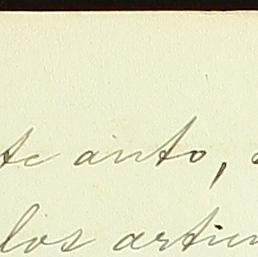 te auto,
los articu